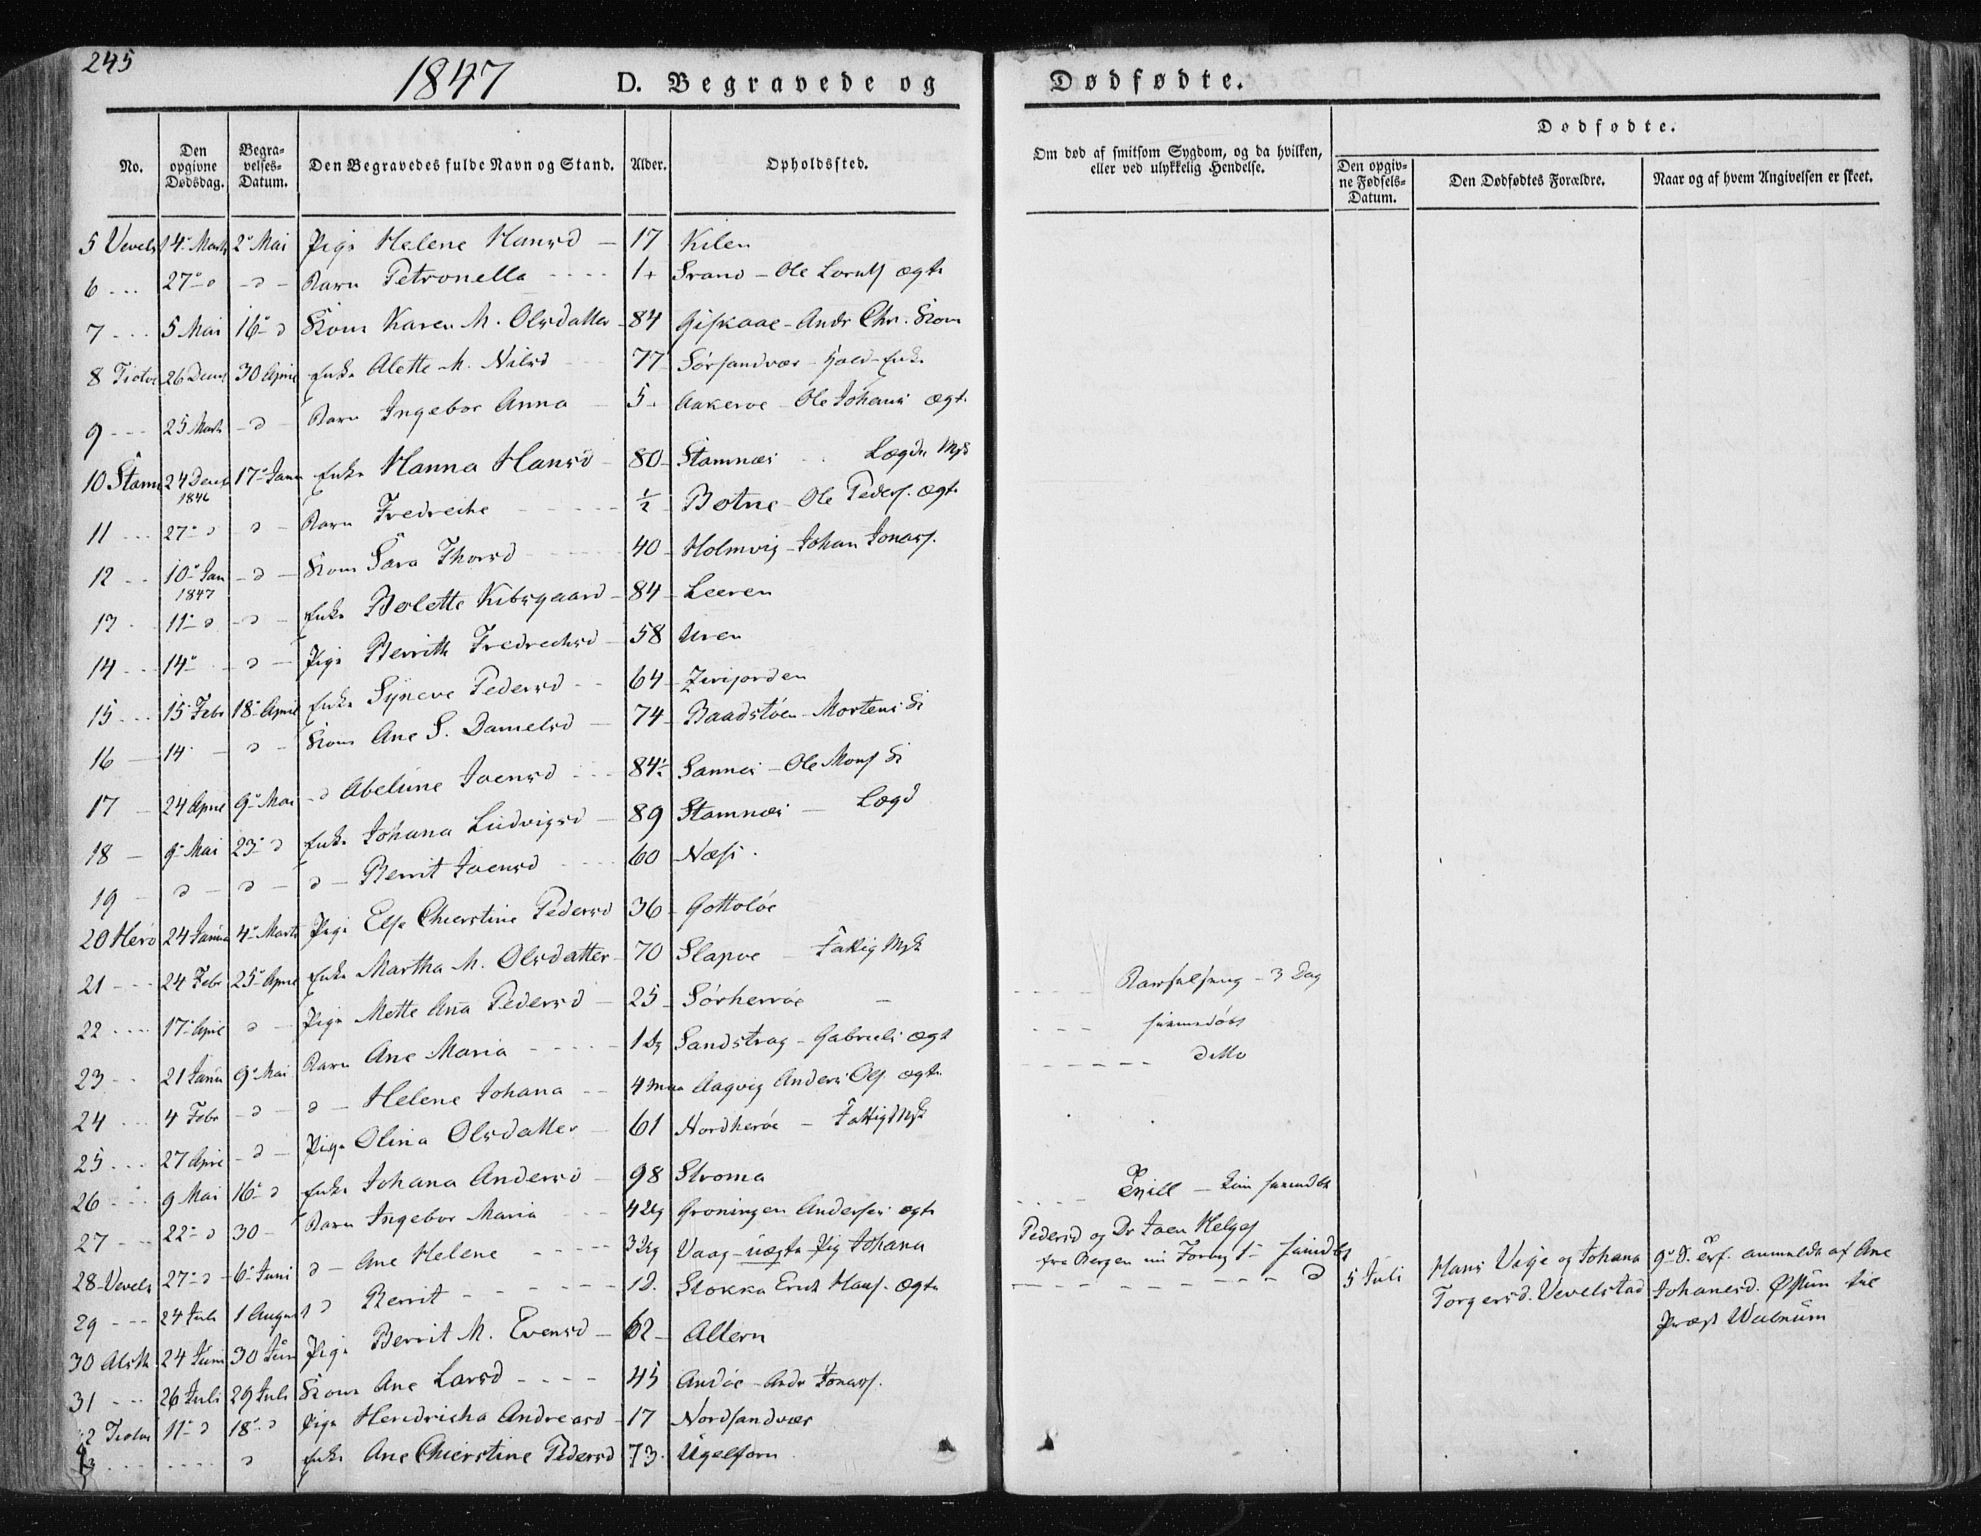 245
1847
D. Begravede og
Dødfødte.
No.
Den opgivne Dødsdag.
Begravelses-Datum.
Den Begravedes fulde Navn og Stand.
Alder.
Opholdssted.
Om død af smitsom Sygdom, og da hvilken, eller ved ulykkelig Hendelse.
Dødfødte.
Den opgivne Fødsels-Datum.
Den Dødfødtes Forældre.
Naar og af hvem Angivelsen er skeet.
5 Vevels 14 Marts 2 Mai Pige Helene Hansd 17 Kilen
6 27 d d Barn Petronella 1 Ole ægte
7 5 Mai 16 d Kone Karen M. Olsdatter 84 Andr Chr. Kone
8 Tiøtø 26 Decbr 30 April Enke Alette M. Nilsd 77 Sørsandvær Enke
9 25 Marts d Barn Ingebor Anna 5 Aakerøe Ole Johans ægte
10 Stamn 24 Decbr 1846 17 Janu Enke Hanna Hansd 80 Stamnæs Lægd
11 27 d d Barn Fredreike ½ Botne Ole Peders. ægte
12 10 Jan 1847 d Kone Sara Thorsd 40 Holmvig Johan Jonass.
13 11 d d Enke Bolette Kibsgaard 84 Leeren
14 14 d Pige Berrith Fredrechsd 58 Uren
15 15 Febr 18 April Enke Synøve Pedersd 64
16 14 d Kone Ane S. Danielsd 74 Baadstøen Mortens
17 24 April 9 Mai d Abelune Joensd 84½ Sannes Ole Mons
18 9 Mai 23 d Enke Johana Ludvigsd 89 Stamnæs Lægd
19 d d d Berrit Joensd 60 Næss
20 Herø 24 Janua 4 Marts Pige Else Chierstine Pedersd 36
21 24 Febr 25 April Enke Martha M. Olsdatter 70 Slapøe Fattig
22 17 April d Pige Mette Ana Pedersd 25 Sørherrøe
Barselseng 3 Dag
23 21 Janu 9 Mai Barn Ane Maria 1 Dg Sandstrag Gabriels ægte
hiemedøbt
24 4 Febr d d Helene Johana 4 Aagvig Anders Ols. ægte
ditto
25 27 April d Pige Olina Olsdatter 61 Nordherøe Fattig
26 9 Mai 16 d Enke Johana Andersd 98 Stroma
27 22 d 30 Barn Ingebor Maria 4 Dg Groningen Andersen ægte
28 Vevels 27 d 6 Juni d Ane Helene 3 Dg Vaag uægte Pig Johana
Pedersd og Dr Joen Helges
fra Bergen
29 24 Juli 1 August d Berrit 1 d. Stokka Erick Hans. ægte
5 Juli
Hans Vage og Johana
Torgersd. Vevelstad
9 anmeldt af Ane
Johanesd. til
Præst Walnum
30 Alsth 24 Juni 30 Juni Pige Berrit M. Evensd 62 Altern
31 26 Juli 29 Juli Kone Ane Larsd 45 Andøe Andr Jonass.
32 Tiøtø 11 d 18 d Pige Hendricha Andreasd 17 Nordsandvær
d Enke Ane Chierstine Pedersd 73